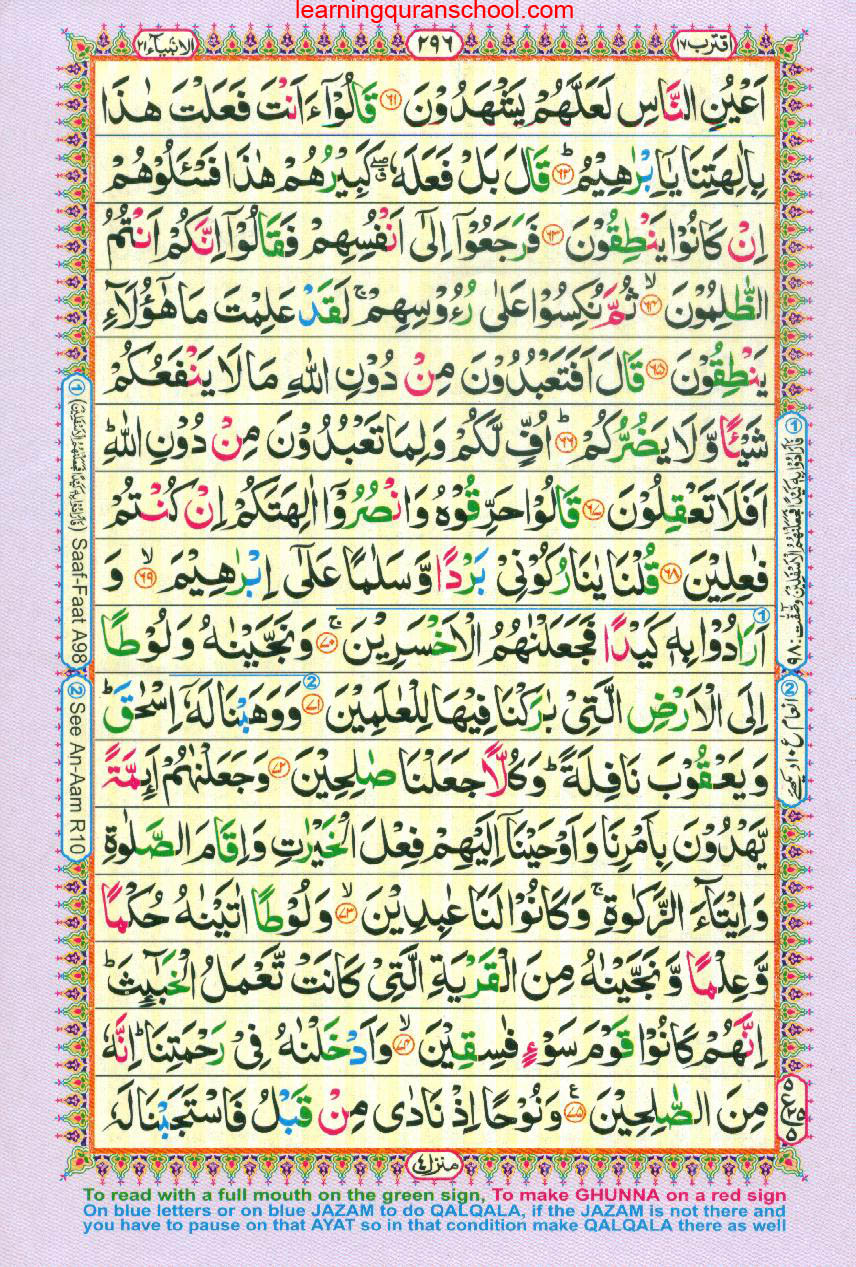 learningquranschool.com
اقترب ١٧
٢٩٦
الانبیآء ٢١
اَعۡیُنِ النَّاسِ لَعَلَّهُمۡ یَشۡهَدُوۡنَ ﴿۶۱﴾ قَالُوۡۤا ءَاَنۡتَ فَعَلۡتَ هٰذَا
بِاٰلِهَتِنَا یٰۤاِبۡرٰهِیۡمُ ؕ﴿۶۲﴾ قَالَ بَلۡ فَعَلَهٗ ٭ۖ کَبِیۡرُهُمۡ هٰذَا فَسۡـَٔلُوۡهُمۡ
اِنۡ کَانُوۡا یَنۡطِقُوۡنَ ﴿۶۳﴾ فَرَجَعُوۡۤا اِلٰۤی اَنۡفُسِهِمۡ فَقَالُوۡۤا اِنَّکُمۡ اَنۡتُمُ
الظّٰلِمُوۡنَ ﴿ۙ۶۴﴾ ثُمَّ نُکِسُوۡا عَلٰی رُءُوۡسِهِمۡ ۚ لَقَدۡ عَلِمۡتَ مَا هٰۤؤُلَآءِ
یَنۡطِقُوۡنَ ﴿۶۵﴾ قَالَ اَفَتَعۡبُدُوۡنَ مِنۡ دُوۡنِ اللّٰهِ مَا لَا یَنۡفَعُکُمۡ
شَیۡئًا وَّ لَا یَضُرُّکُمۡ ﴿ؕ۶۶﴾ اُفٍّ لَّکُمۡ وَ لِمَا تَعۡبُدُوۡنَ مِنۡ دُوۡنِ اللّٰهِ ؕ
اَفَلَا تَعۡقِلُوۡنَ ﴿۶۷﴾ قَالُوۡا حَرِّقُوۡهُ وَ انۡصُرُوۡۤا اٰلِهَتَکُمۡ اِنۡ کُنۡتُمۡ
فٰعِلِیۡنَ ﴿۶۸﴾ قُلۡنَا یٰنَارُ کُوۡنِیۡ بَرۡدًا وَّ سَلٰمًا عَلٰۤی اِبۡرٰهِیۡمَ ﴿ۙ۶۹﴾ وَ
اَرَادُوۡا بِهٖ کَیۡدًا فَجَعَلۡنٰهُمُ الۡاَخۡسَرِیۡنَ ﴿ۚ۷۰﴾ وَ نَجَّیۡنٰهُ وَ لُوۡطًا
اِلَی الۡاَرۡضِ الَّتِیۡ بٰرَکۡنَا فِیۡهَا لِلۡعٰلَمِیۡنَ ﴿۷۱﴾ وَ وَهَبۡنَا لَهٗۤ اِسۡحٰقَ ؕ
وَ یَعۡقُوۡبَ نَافِلَةً ؕ وَ کُلًّا جَعَلۡنَا صٰلِحِیۡنَ ﴿۷۲﴾ وَ جَعَلۡنٰهُمۡ اَئِمَّةً
یَّهۡدُوۡنَ بِاَمۡرِنَا وَ اَوۡحَیۡنَاۤ اِلَیۡهِمۡ فِعۡلَ الۡخَیۡرٰتِ وَ اِقَامَ الصَّلٰوةِ
وَ اِیۡتَآءَ الزَّکٰوةِ ۚ وَ کَانُوۡا لَنَا عٰبِدِیۡنَ ﴿ۙ۷۳﴾ وَ لُوۡطًا اٰتَیۡنٰهُ حُکۡمًا
وَّ عِلۡمًا وَّ نَجَّیۡنٰهُ مِنَ الۡقَرۡیَةِ الَّتِیۡ کَانَتۡ تَّعۡمَلُ الۡخَبٰٓئِثَ ؕ
اِنَّهُمۡ کَانُوۡا قَوۡمَ سَوۡءٍ فٰسِقِیۡنَ ﴿ۙ۷۴﴾ وَ اَدۡخَلۡنٰهُ فِیۡ رَحۡمَتِنَا ؕ اِنَّهٗ
مِنَ الصّٰلِحِیۡنَ ﴿۷۵﴾ وَ نُوۡحًا اِذۡ نَادٰی مِنۡ قَبۡلُ فَاسۡتَجَبۡنَا لَهٗ
منزل ۴
① فَاَرَادُوۡا بِهٖ کَیۡدًا فَجَعَلۡنٰهُمُ الۡاَسۡفَلِیۡنَ ۹۸
② انعام ع ۱۰
① (فَاَرَادُوۡا بِهٖ کَیۡدًا فَجَعَلۡنٰهُمُ الۡاَسۡفَلِیۡنَ) Saaf-Faat A98
② See An-Aam R 10
To read with a full mouth on the green sign, To make GHUNNA on a red sign
On blue letters or on blue JAZAM to do QALQALA, if the JAZAM is not there and
you have to pause on that AYAT so in that condition make QALQALA there as well